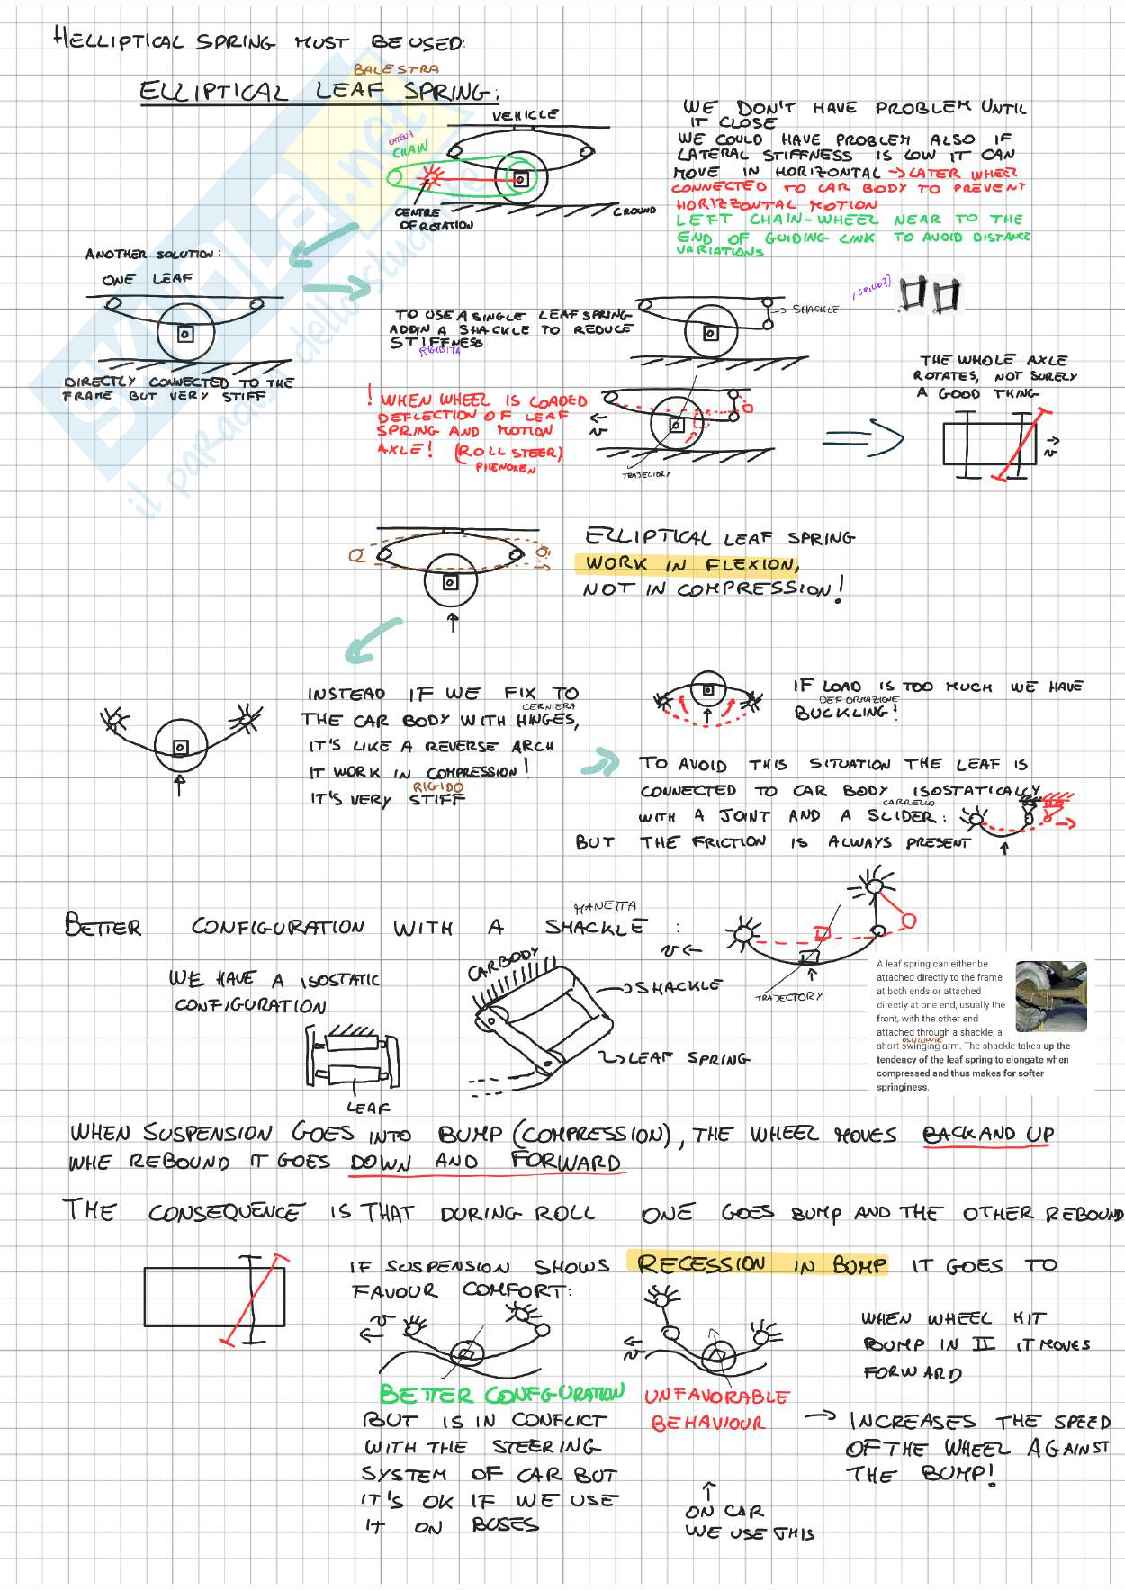 HELLIPTICAL SPRING MUST BE USED:
BALESTRA
ELLIPTICAL LEAF SPRING:
VEHICLE
CHAIN
CENTRE
OF ROTATION
GROUND
WE DON'T HAVE PROBLEM UNTIL
IT CLOSE
WE COULD HAVE PROBLEM ALSO IF
LATERAL STIFFNESS IS LOW IT CAN
MOVE IN HORIZONTAL → LATER WHEEL
CONNECTED TO CAR BODY TO PREVENT
HORIZZONTAL MOTION
LEFT CHAIN-WHEEL NEAR TO THE
END OF GUIDING LINK TO AVOID DISTANCE
VARIATIONS
ANOTHER SOLUTION:
ONE LEAF
DIRECTLY CONNECTED TO THE
FRAME BUT VERY STIFF
TO USE A SINGLE LEAF SPRING
ADDIN A SHACKLE TO REDUCE
STIFFNESS
RIGIDITA
SHACKLE
! WHEN WHEEL IS LOADED
DEFLECTION OF LEAF
SPRING AND MOTION
AXLE! (ROLL STEER)
PHENOMEN
v
TRAJECTORY
THE WHOLE AXLE
ROTATES, NOT SURELY
A GOOD THING
v
ELLIPTICAL LEAF SPRING
WORK IN FLEXION,
NOT IN COMPRESSION!
INSTEAD IF WE FIX TO
CERNIERA
THE CAR BODY WITH HINGES,
IT'S LIKE A REVERSE ARCH
IT WORK IN COMPRESSION!
RIGIDO
IT'S VERY STIFF
IF LOAD IS TOO MUCH WE HAVE
DEFORMAZIONE
BUCKLING!
TO AVOID THIS SITUATION THE LEAF IS
CONNECTED TO CAR BODY ISOSTATICALLY
CARRELLO
WITH A JOINT AND A SLIDER:
BUT THE FRICTION IS ALWAYS PRESENT
MANETTA
BETTER CONFIGURATION WITH A SHACKLE:
v
TRAJECTORY
WE HAVE A ISOSTATIC
CONFIGURATION
LEAF
CARBODY
SHACKLE
LEAF SPRING
A leaf spring can either be
attached directly to the frame
at both ends or attached
directly at one end, usually the
front, with the other end
attached through a shackle, a
short swinging arm. The shackle takes up the
tendency of the leaf spring to elongate when
compressed and thus makes for softer
springiness.
WHEN SUSPENSION GOES INTO BUMP (COMPRESSION), THE WHEEL MOVES BACK AND UP
WHE REBOUND IT GOES DOWN AND FORWARD
THE CONSEQUENCE IS THAT DURING ROLL ONE GOES BUMP AND THE OTHER REBOUND
IF SUSPENSION SHOWS RECESSION IN BUMP IT GOES TO
FAVOUR COMFORT:
v
BETTER CONFIGURATION
BUT IS IN CONFLICT
WITH THE STEERING
SYSTEM OF CAR BUT
IT'S OK IF WE USE
IT ON BUSES
v
UNFAVORABLE
BEHAVIOUR
ON CAR
WE USE THIS
WHEN WHEEL HIT
BUMP IN II IT MOVES
FORWARD
→ INCREASES THE SPEED
OF THE WHEEL AGAINST
THE BUMP!